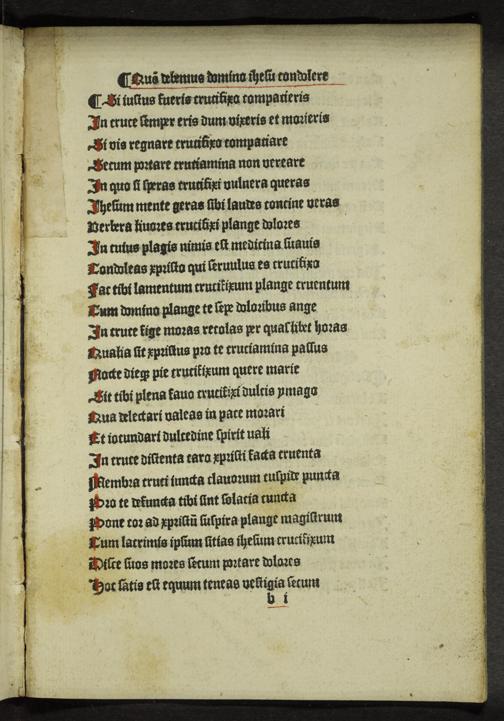 ¶ Quō debemus domino ihesu condolere
¶ Si iustus fueris crucifixo compacieris
In cruce semper eris dum vixeris et morieris
Si vis regnare crucifixo compaciare
Secum portare cruciamina non vereare
In quo si speras crucifixi vulnera queras
Ihesum mente geras sibi laudes concine veras
Verbera liuores crucifixi plange dolores
In cuius plagis nimis est medicina suauis
Condoleas xpristo qui seruulus es crucifixo
Fac tibi lamentum crucifixum plange cruentum
Cum domino plange te sepe doloribus ange
In cruce fige moras recolas per quaslibet horas
Qualia sit xpristus pro te cruciamina passus
Nocte dieqz pie crucifixum quere marie
Sit tibi plena fauo crucifixi dulcis ymago
Qua delectari valeas in pace morari
Et iocundari dulcedine spirit uali
In cruce distenta caro xpristi facta cruenta
Membra cruci iuncta clauorum cuspide puncta
Pro te defuncta tibi sint solacia cuncta
Pone cor ad xpristū suspira plange magistrum
Cum lacrimis ipsum sitias ihesum crucifixum
Disce suos mores secum portare dolores
Hoc satis est equum teneas vestigia secum
b i